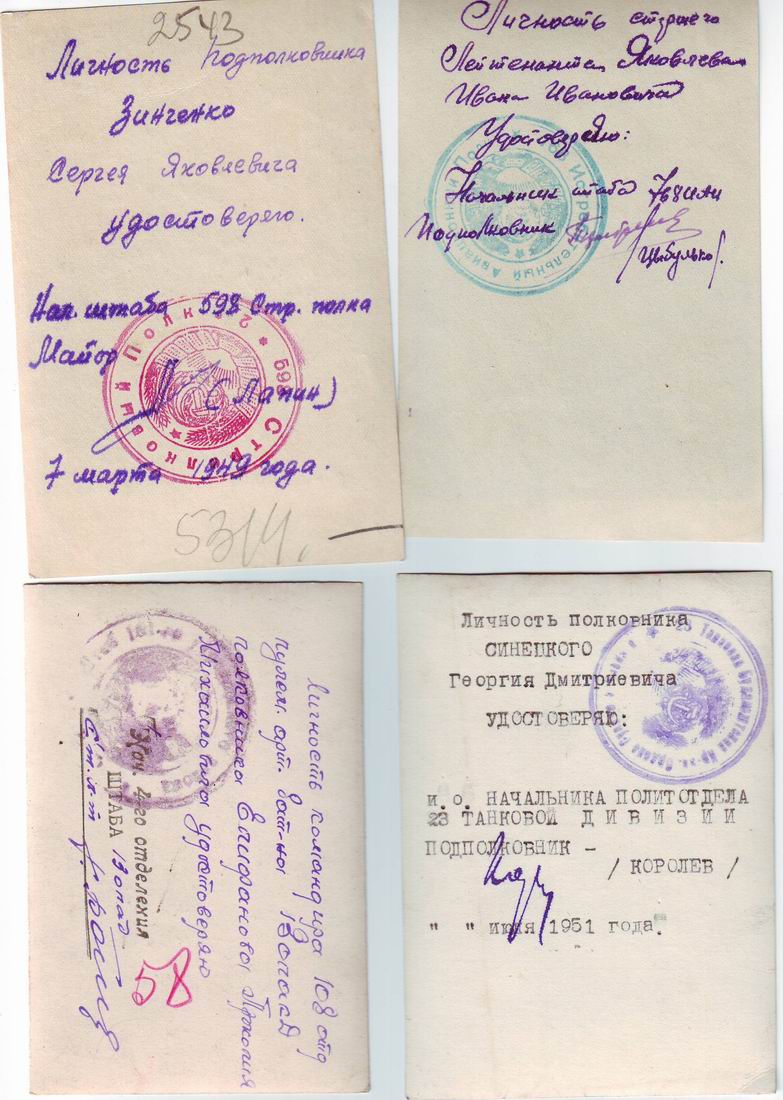 2543
Личность Подполковника
Зинченко
Сергея Яковлевича
удостоверяю.
Нач. штаба 598 Стр. полка
Майор
(Лапин)
7 марта 1949 года.
Стрелковый Полк
5314.
Личность старшего
Лейтенанта Яковлева
Ивана Ивановича
Удостоверяю:
Начальник штаба 768 иап
Подполковник
/Цыбулько/.
Личность командира 108 отд
пулем. арт. бат-на
полковника Епифанова Прокопия
Михайловича удостоверяю
Нач. 4-го отделения
ШТАБА
Ст. л-т
58
Личность полковника
СИНЕЦКОГО
Георгия Дмитриевича
УДОСТОВЕРЯЮ:
и.о. НАЧАЛЬНИКА ПОЛИТОТДЕЛА
23 ТАНКОВОЙ ДИВИЗИИ
ПОДПОЛКОВНИК –
/ КОРОЛЕВ /
" " июня 1951 года.